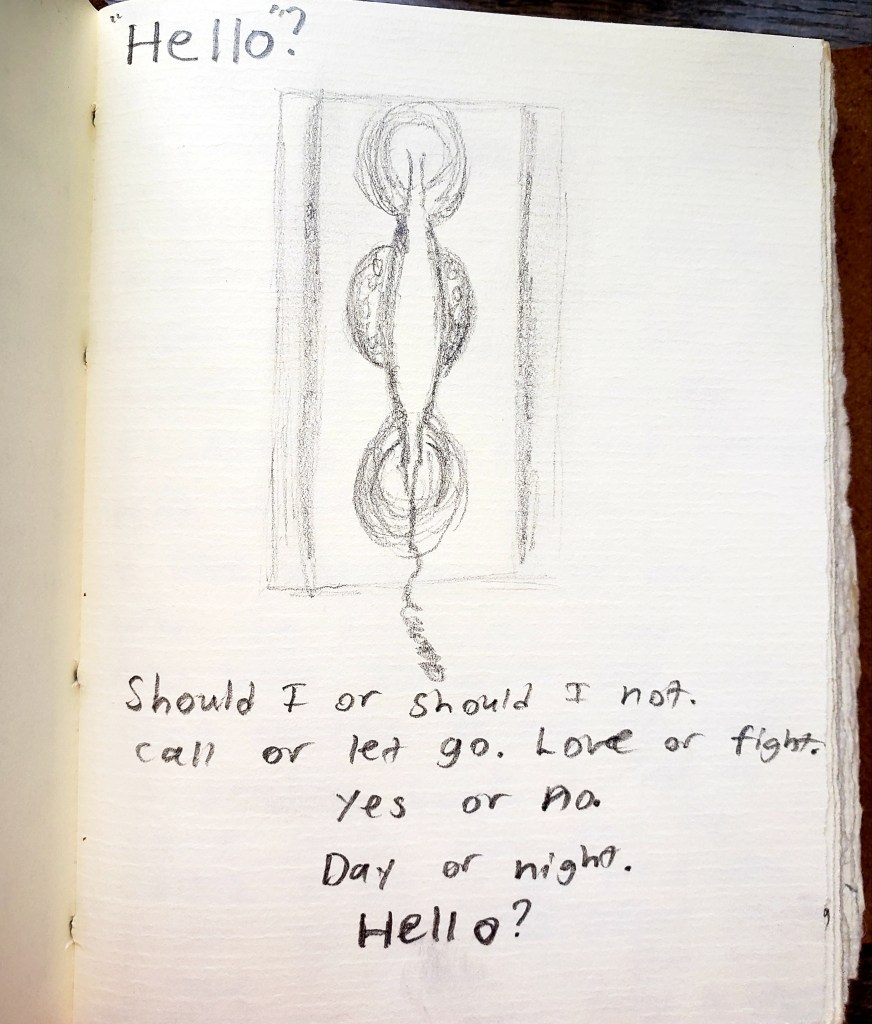 "Hello"?
Should I or should I not.
call or let go. Love or fight.
Yes or no.
Day or night.
Hello?